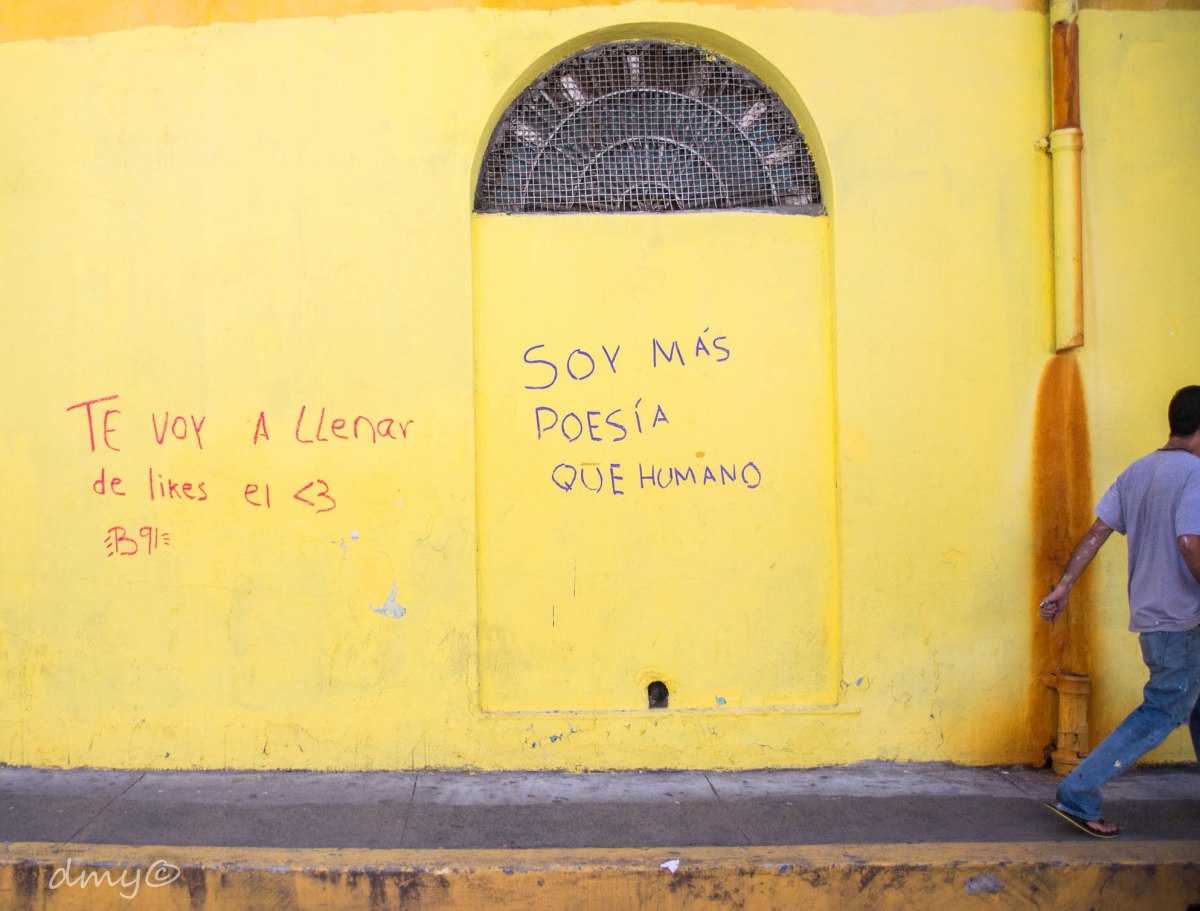 TE VOY A LLenar
de likes el <3
B91
SOY MÁS
POESÍA
QUE HUMANO
dmy©